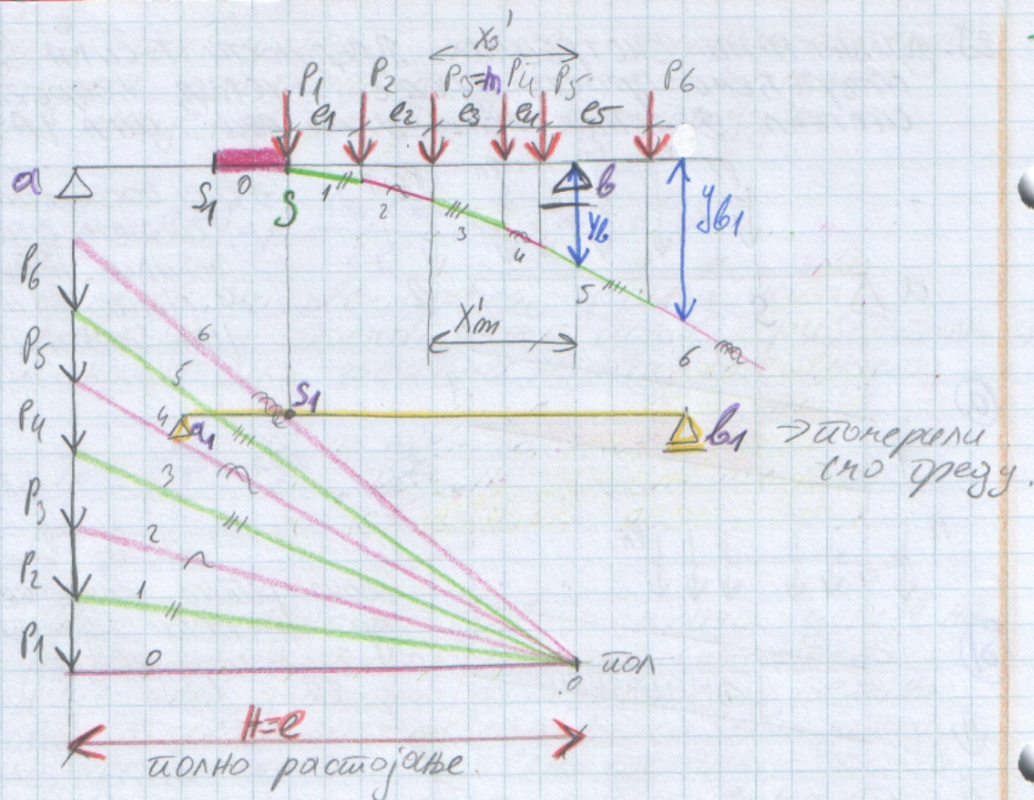 x₃'
P₁ P₂ P₃=m P₄ P₅ P₆
e₁ e₂ e₃ e₄ e₅
a S₁ 0 S 1 2 3 4 b y_b y_b1
5
x'm
6
P₆
P₅
P₄
P₃
P₂
P₁
6
5
4
3
2
1
0
a₁ S₁ b₁
→ померили
смо греду.
0 пол
H=l
полно растојање.